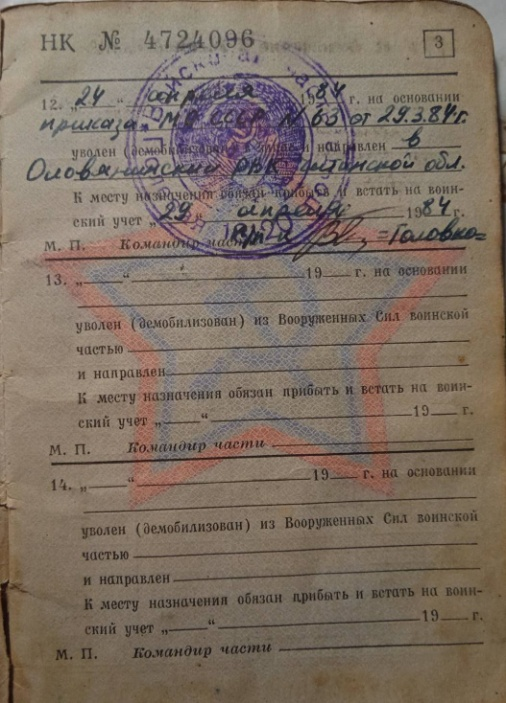 НК № 4724096
3
12. „24“ апреля 1984 г. на основании
приказа МО СССР № 63 от 29.3.84 г.
уволен и направлен в
Оловяннинский РВК Читинской обл.
К месту назначения обязан прибыть и встать на воин-
ский учет „29“ апреля 1984 г.
М. П. Командир части =Головко=
13. „ “ 19 г. на основании
уволен (демобилизован) из Вооруженных Сил воинской
частью
и направлен
К месту назначения обязан прибыть и встать на воин-
ский учет „ “ 19 г.
М. П. Командир части
14. „ “ 19 г. на основании
уволен (демобилизован) из Вооруженных Сил воинской
частью
и направлен
К месту назначения обязан прибыть и встать на воин-
ский учет „ “ 19 г.
М. П. Командир части